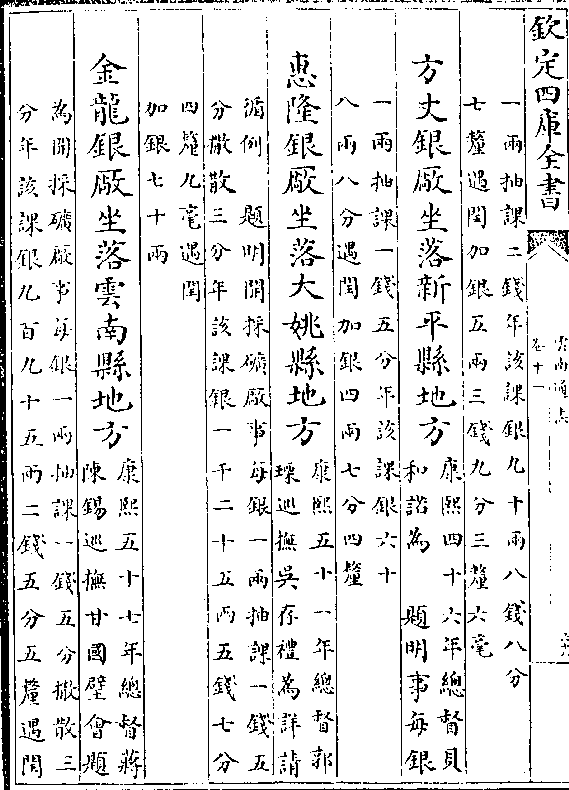 欽定四庫全書
雲南通志
卷十一
一兩抽課二錢年該課銀九十兩八錢八分
七釐遇閏加銀五兩三錢九分三釐六毫
方丈銀厰坐落新平縣地方康熙四十六年總督貝
和諾為　題明事每銀
一兩抽課一錢五分年該課銀六十
八兩八分遇閏加銀四兩七分四釐
惠隆銀厰坐落大姚縣地方康熙五十一年總督郭
瑮巡撫吳存禮為詳請
循例　題明開採礦厰事每銀一兩抽課一錢五
分撒散三分年該課銀一千二十五兩五錢七分
四釐九毫遇閏
加銀七十兩
金龍銀厰坐落雲南縣地方康熙五十七年總督蔣
陳錫巡撫甘國壁會題
為開採礦厰事每銀一兩抽課一錢五分撒散三
分年該課銀九百九十五兩二錢五分五釐遇閏